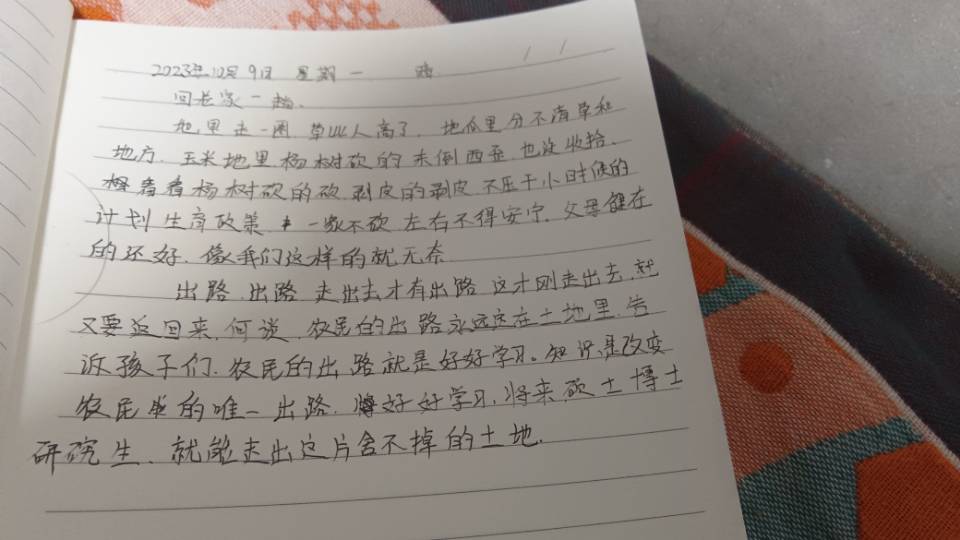 2023年10月9日 星期一 晴
回老家一趟.
地里走一圈,草比人高了.地瓜里分不清草和
地方.玉米地里杨树砍的东倒西歪.也没收拾.
看着杨树砍的砍剥皮的剥皮 不压于小时候的
计划生育政策 一家不砍 左右不得安宁.父母健在
的还好.像我们这样的就无奈
出路.出路 走出去才有出路 这才刚走出去.就
又要返回来.何谈.农民的出路永远在土地里.告
诉孩子们.农民的出路就是好好学习。知识是改变
农民的唯一出路.好好学习.将来硕士博士
研究生.就能走出这片舍不掉的土地.